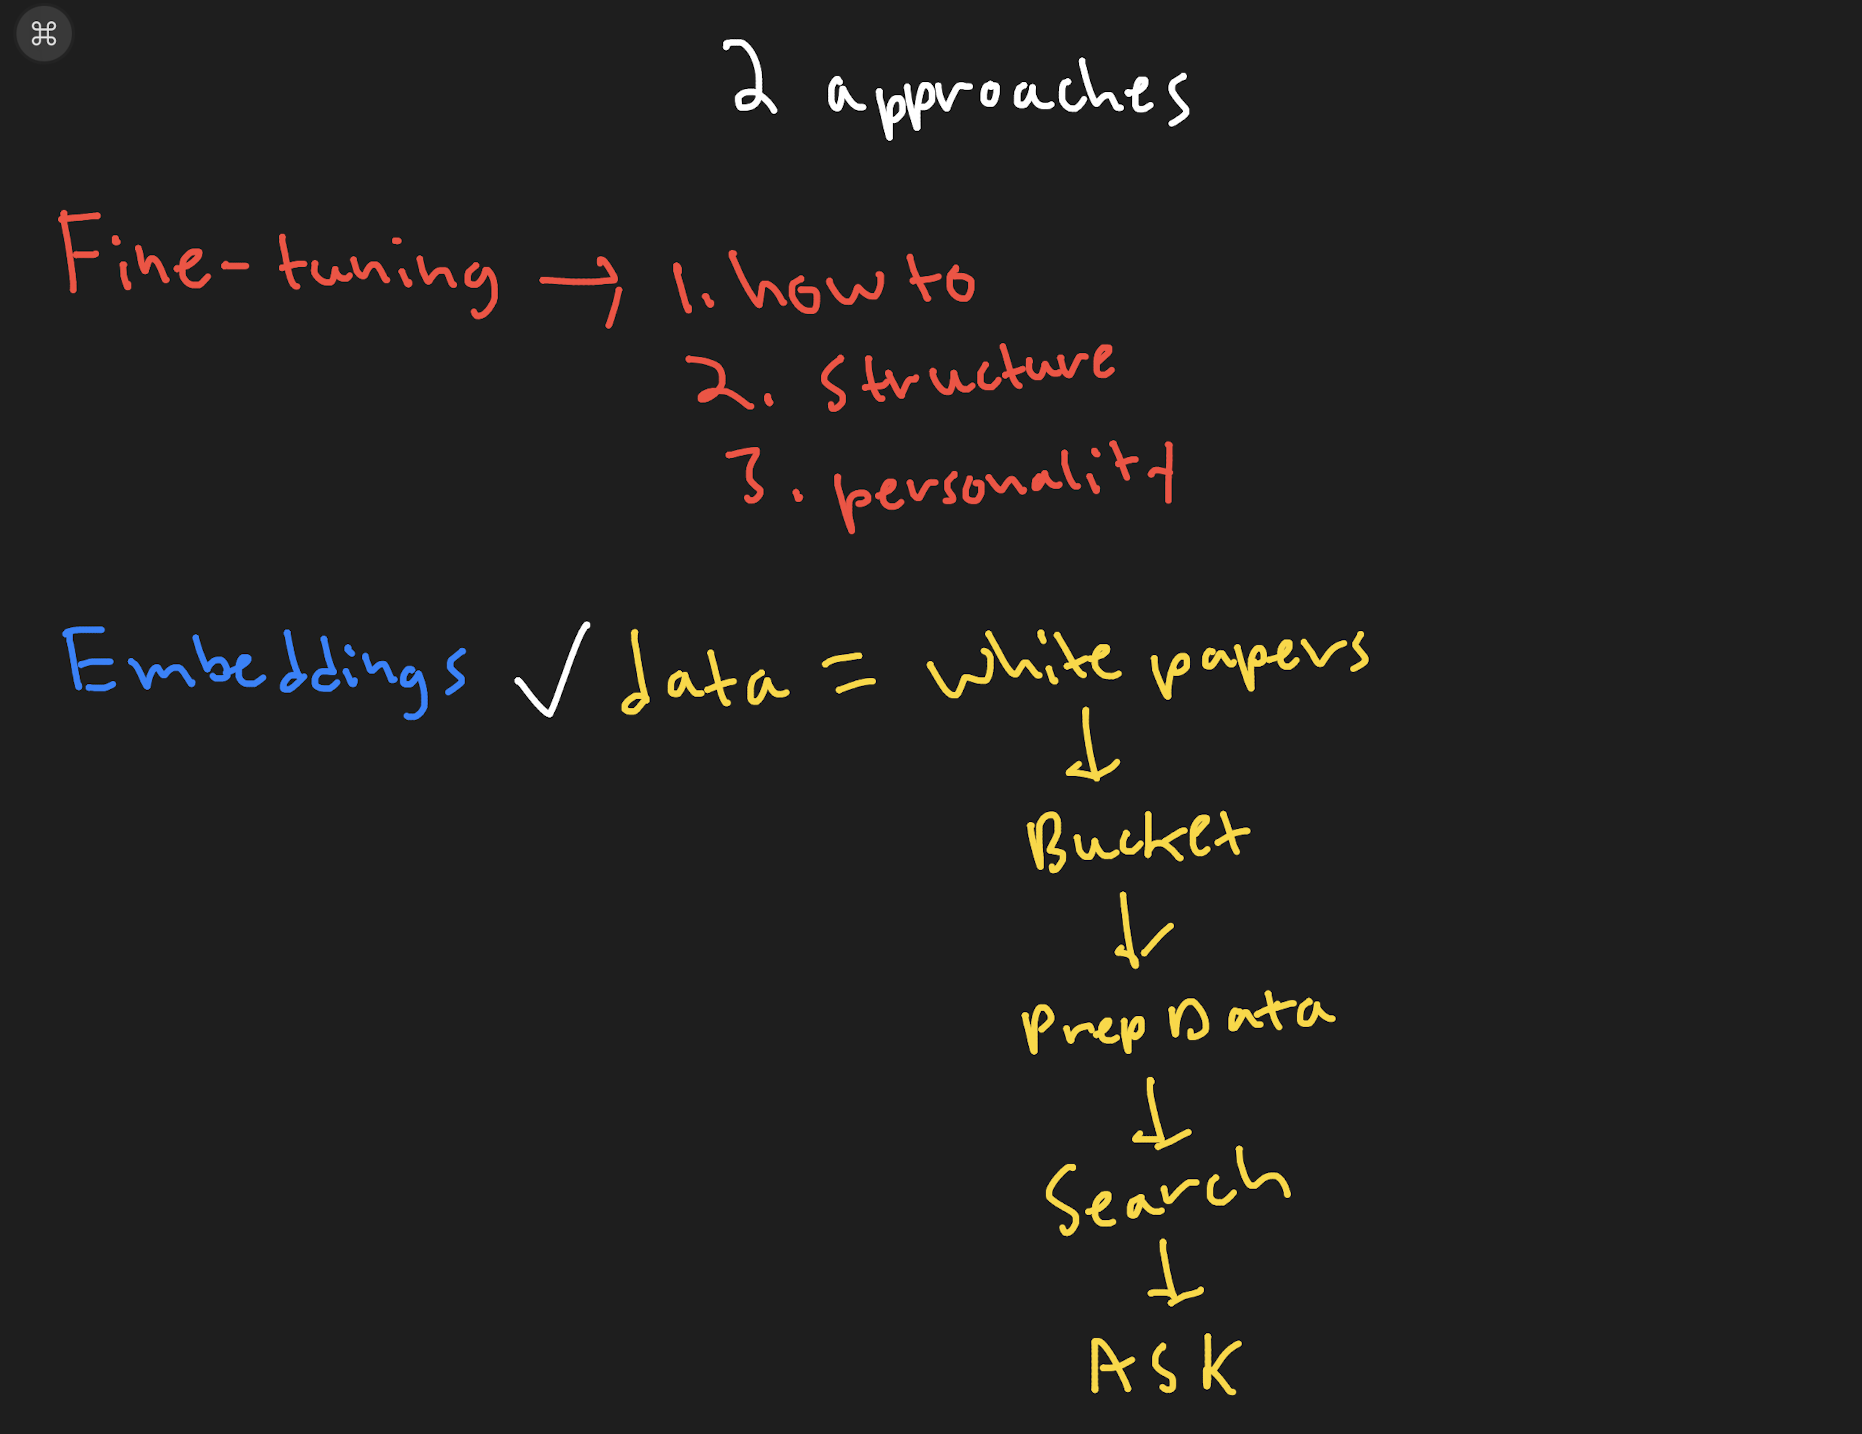 ⌘
2 approaches
Fine-tuning → 1. how to
2. structure
3. personality
Embeddings ✓ data = white papers
↓
Bucket
↓
Prep Data
↓
Search
↓
ASK